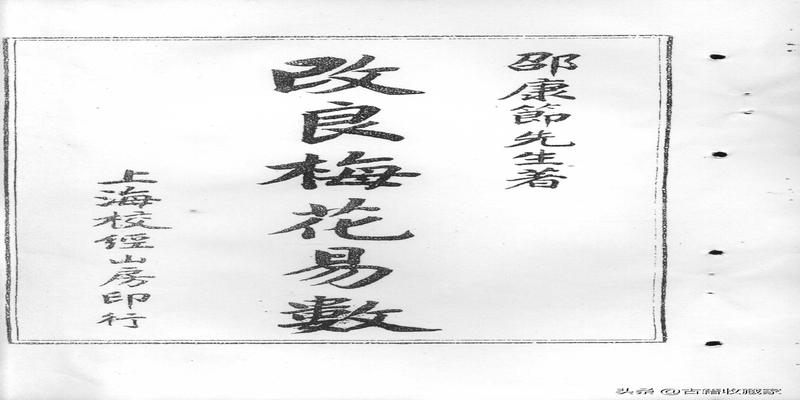 邵康節先生著
改良梅花易數
上海校經山房印行
头条 @古籍收藏家